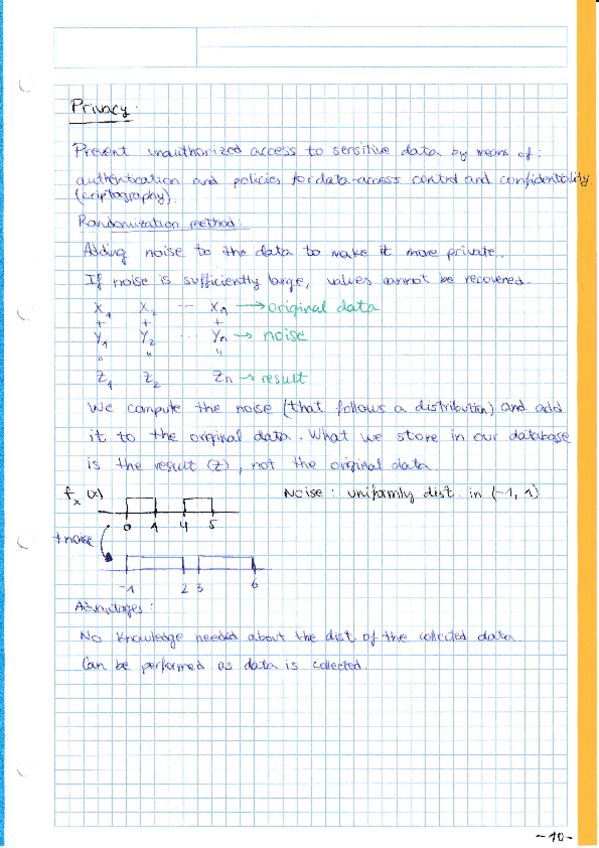 Privacy:
Prevent unauthorized access to sensitive data by means of:
authentication and policies for data-access control and confidentiality.
(criptography).
Randomization method:
Adding noise to the data to make it more private.
If noise is sufficiently large, values cannot be recovered.
X₁ X₂ ... Xn → original data
+ + +
Y₁ Y₂ ... Yn → noise
" " "
Z₁ Z₂ Zn → result
We compute the noise (that follows a distribution) and add
it to the original data. What we store in our database
is the result (z), not the original data
fₓ(x) Noise: uniformly dist. in (-1, 1)
0 1 4 5
+noise
-1 2 3 6
Advantages:
No knowledge needed about the dist. of the collected data.
Can be performed as data is collected.
-10-